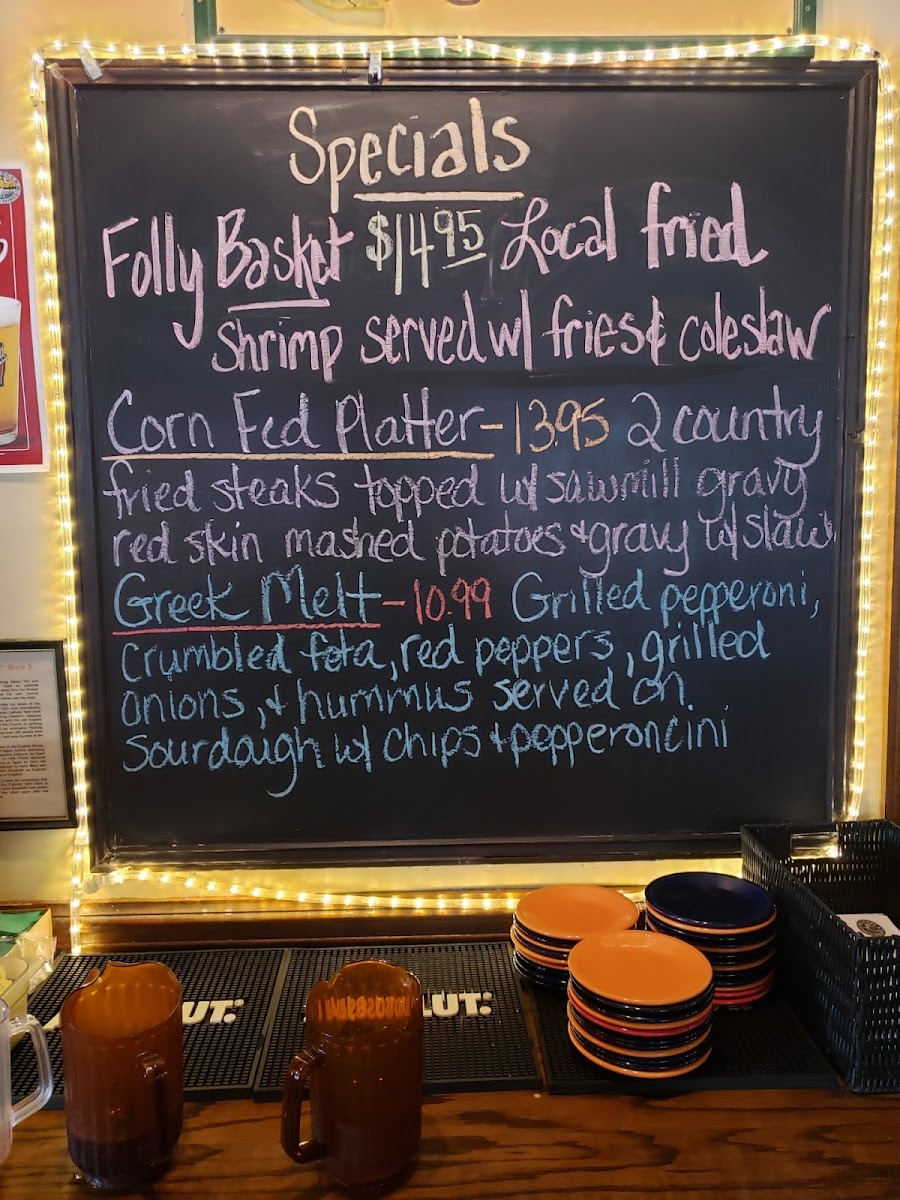 Specials
Folly Basket $14.95 Local fried
Shrimp served w/ fries & coleslaw
Corn Fed Platter - 13.95 2 country
fried steaks topped w/ sawmill gravy
red skin mashed potatoes & gravy w/ slaw
Greek Melt - 10.99 Grilled pepperoni,
Crumbled feta, red peppers, grilled
Onions, & hummus served on
Sourdough w/ chips & pepperoncini
LUT: